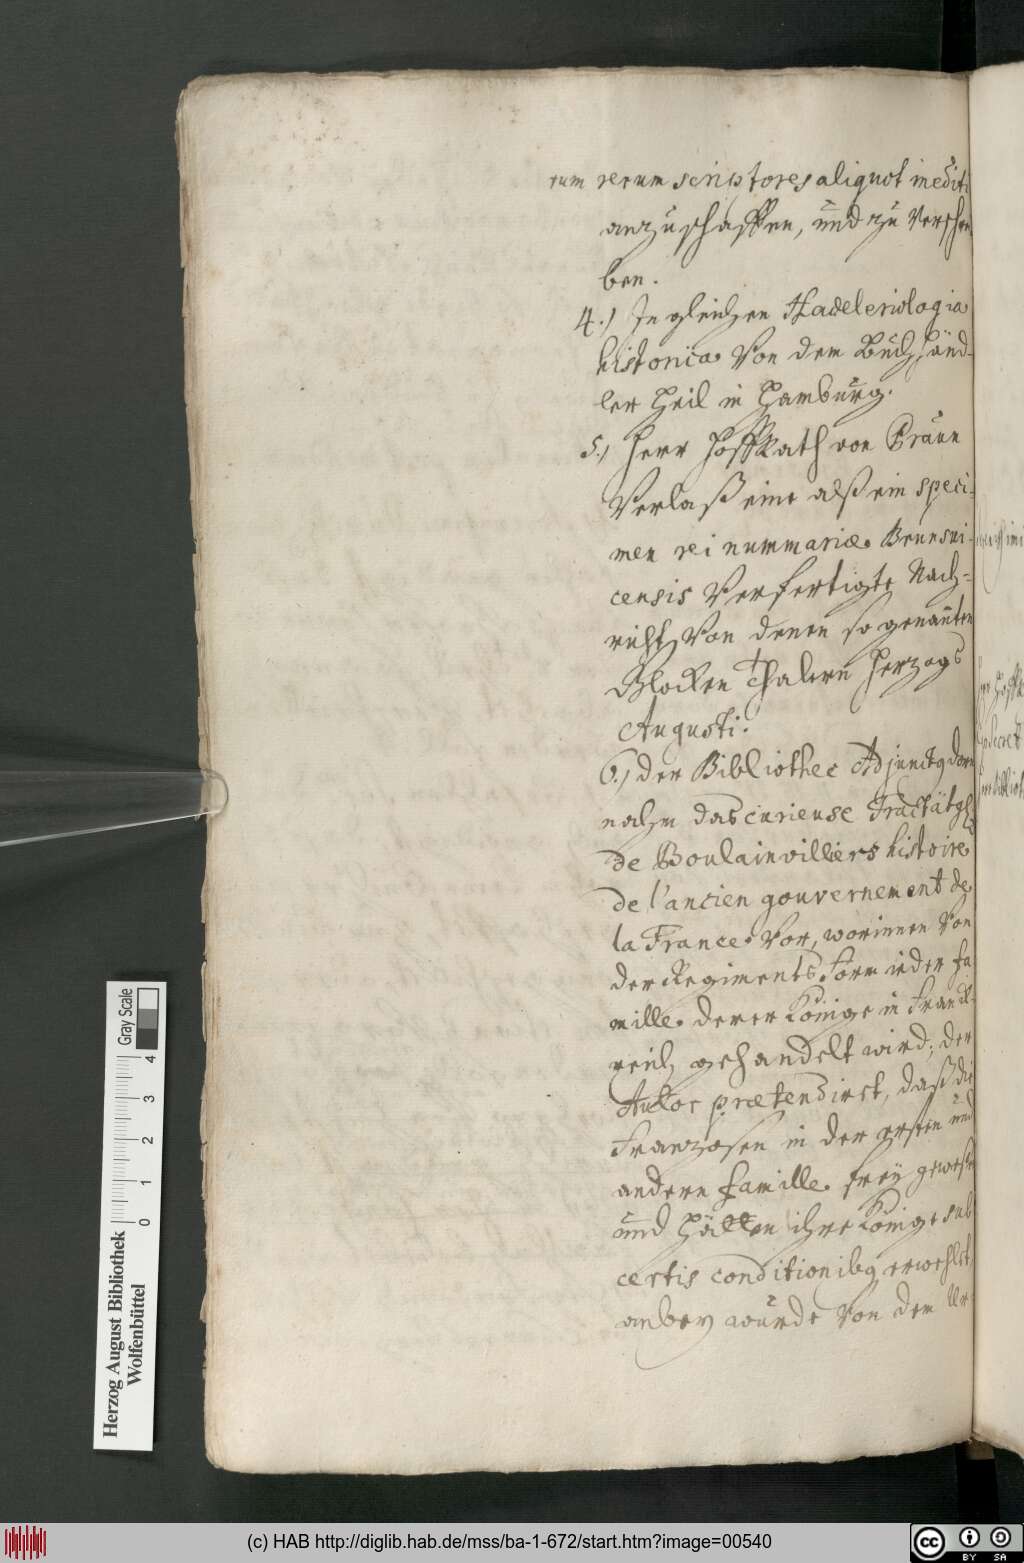 rum rerum scriptores aliquot inediti
anzuschaffen, und zu verschrei
ben.
4.) Ingleichen Hadeleriologia
historica von dem Buchhänd-
ler Heil in Hamburg.
5.) Herr Hoffrath von Praun
verlaß eine alß ein speci-
men rei nummariæ Brunsui-
censis verfertigte Nach-
richt von denen so genanten
Glocken Thalern Herzogs
Augusti.
6.) der Bibliothec Adjunctq dorn
nahm das curieuse Tractätgh
de Boulainvilliers histoire
de l'ancien gouvernement de
la France vor, worinnen von
der Regiments Form ieder fa
mille derer Könige in Franck-
reich gehandelt wird; der
Autor prætendiret, daß die
Franzosen in der ersten und
andern familie frey gewesen
und hätten ihre Könige sub
certis conditionibq erwehlet,
anbey wurde von dem Ur-
Herzog August Bibliothek
Wolfenbüttel
0 1 2 3 4
Gray Scale
(c) HAB http://diglib.hab.de/mss/ba-1-672/start.htm?image=00540
cc BY SA